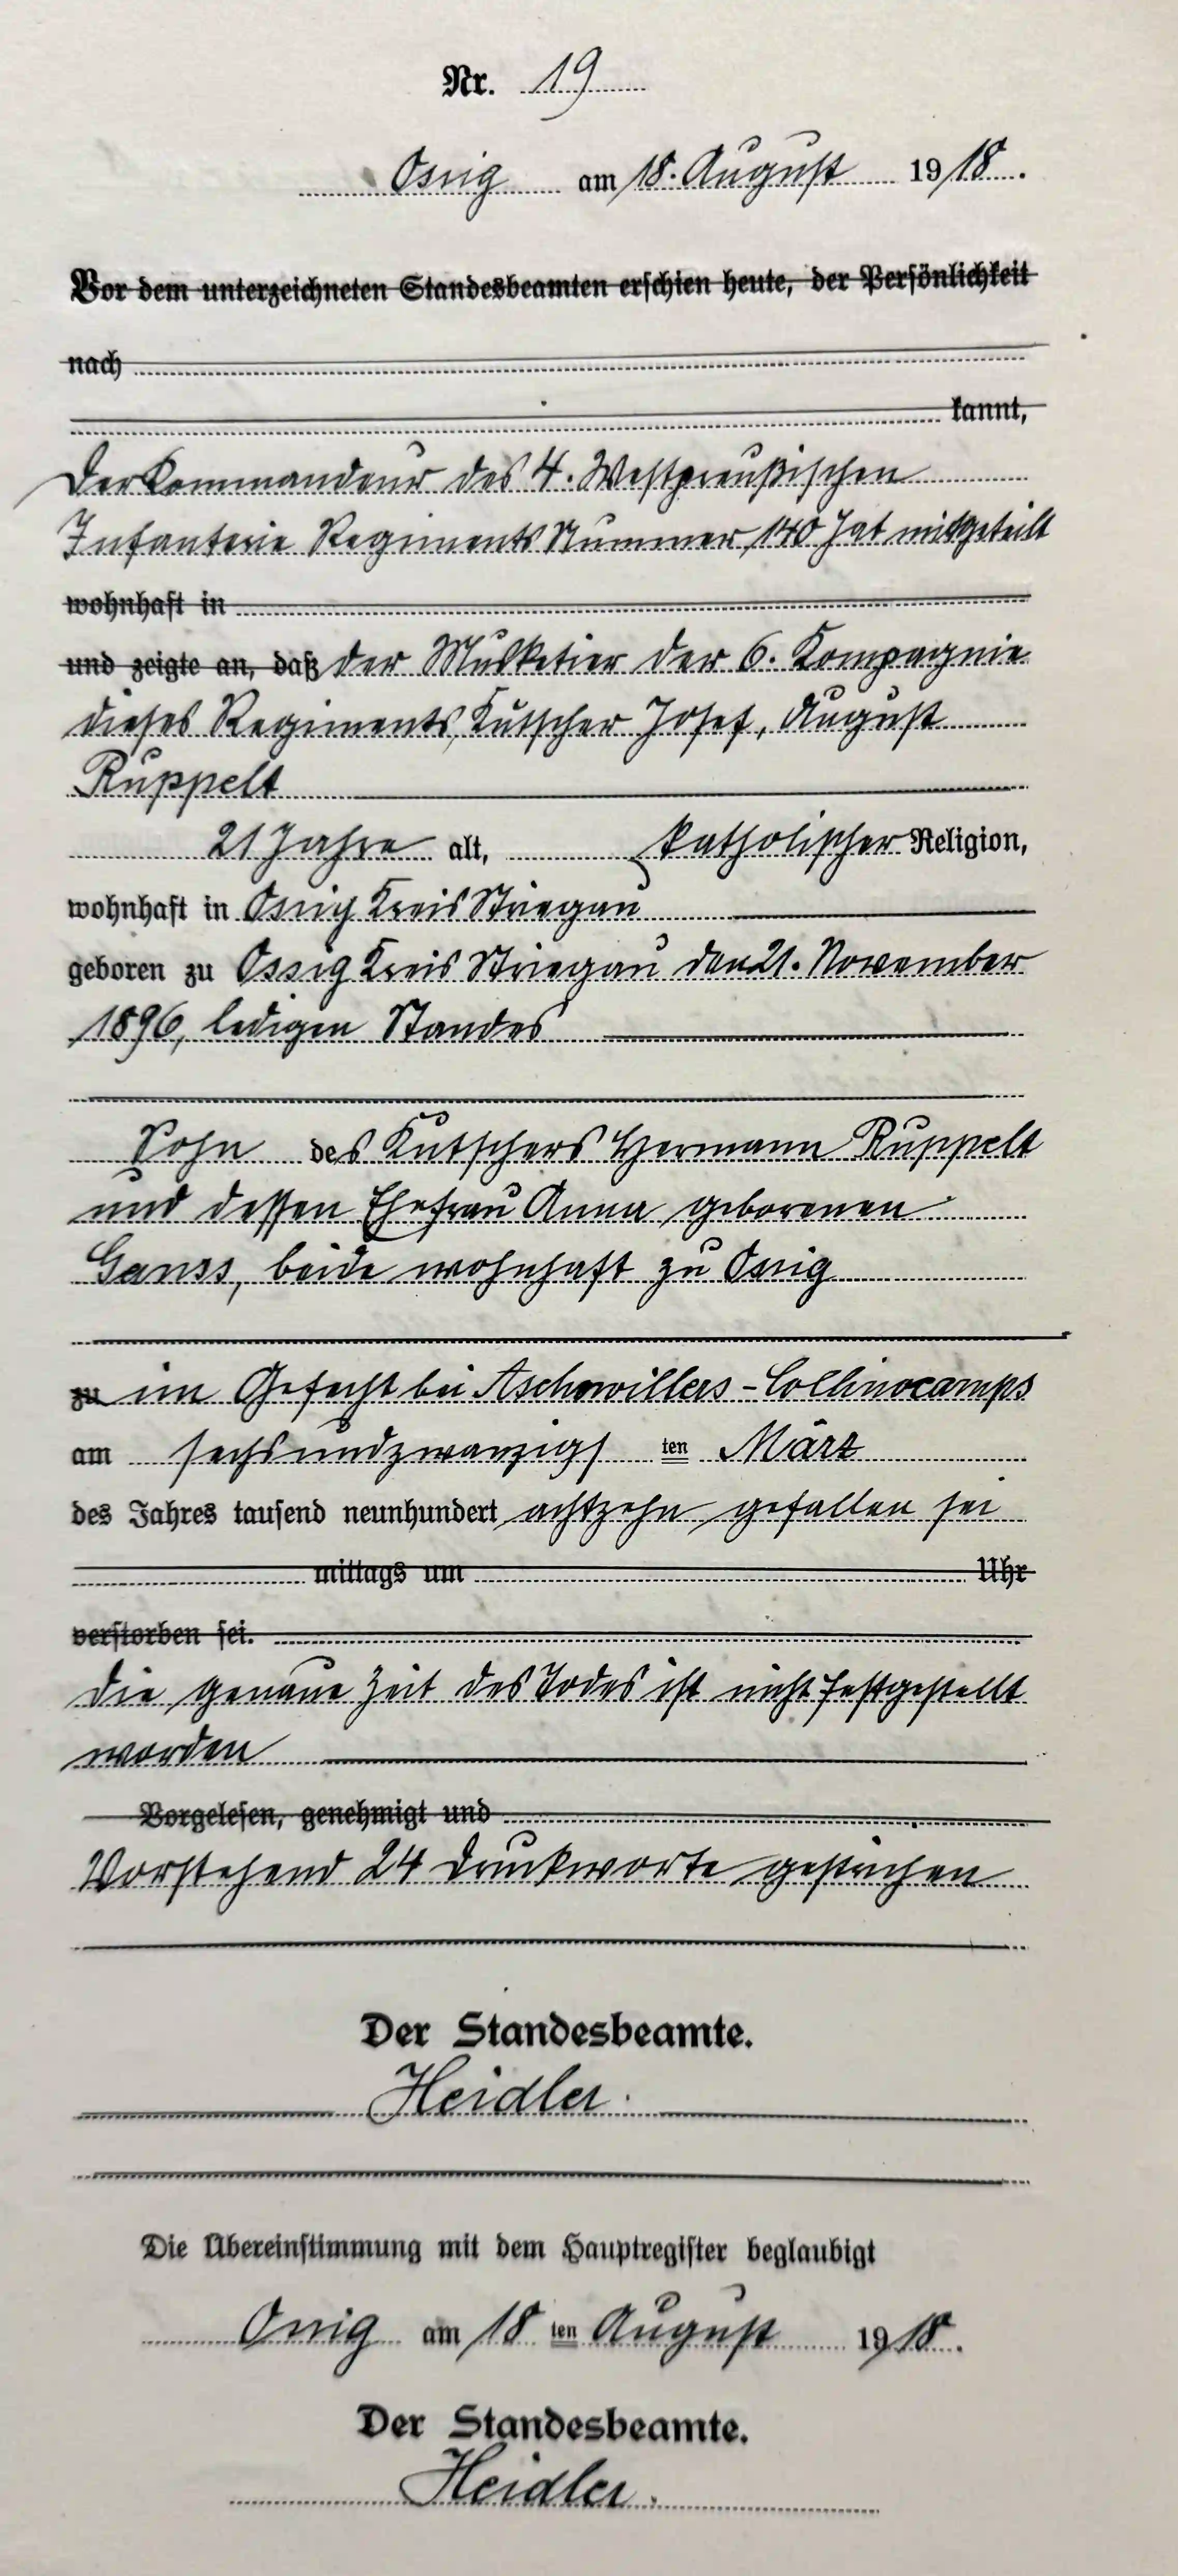 Nr. 19
Ossig am 18. August 1918.
Vor dem unterzeichneten Standesbeamten erschien heute, der Persönlichkeit
nach
kannt,
Der Kommandeur des 4. Westpreußischen
Infanterie Regiments Nummer 140 hat mitgeteilt
wohnhaft in
und zeigte an, daß der Musketier der 6. Kompagnie
dieses Regiments, Kutscher Josef, August
Ruppelt
21 Jahre alt, katholischer Religion,
wohnhaft in Ossig Kreis Striegau
geboren zu Ossig Kreis Striegau den 21. November
1896, ledigen Standes
Sohn des Kutschers Hermann Ruppelt
und dessen Ehefrau Anna geborenen
Ganss, beide wohnhaft zu Ossig
zu im Gefecht bei Aschowillers - Collinocamps
am sechsundzwanzigs ten März
des Jahres tausend neunhundert achtzehn gefallen sei
mittags um Uhr
verstorben sei.
Die genaue Zeit des Todes ist nicht festgestellt
worden
Vorgelesen, genehmigt und
Vorstehend 24 Druckworte gestrichen
Der Standesbeamte.
Heidler.
Die Übereinstimmung mit dem Hauptregister beglaubigt
Ossig am 18 ten August 1918.
Der Standesbeamte.
Heidler.